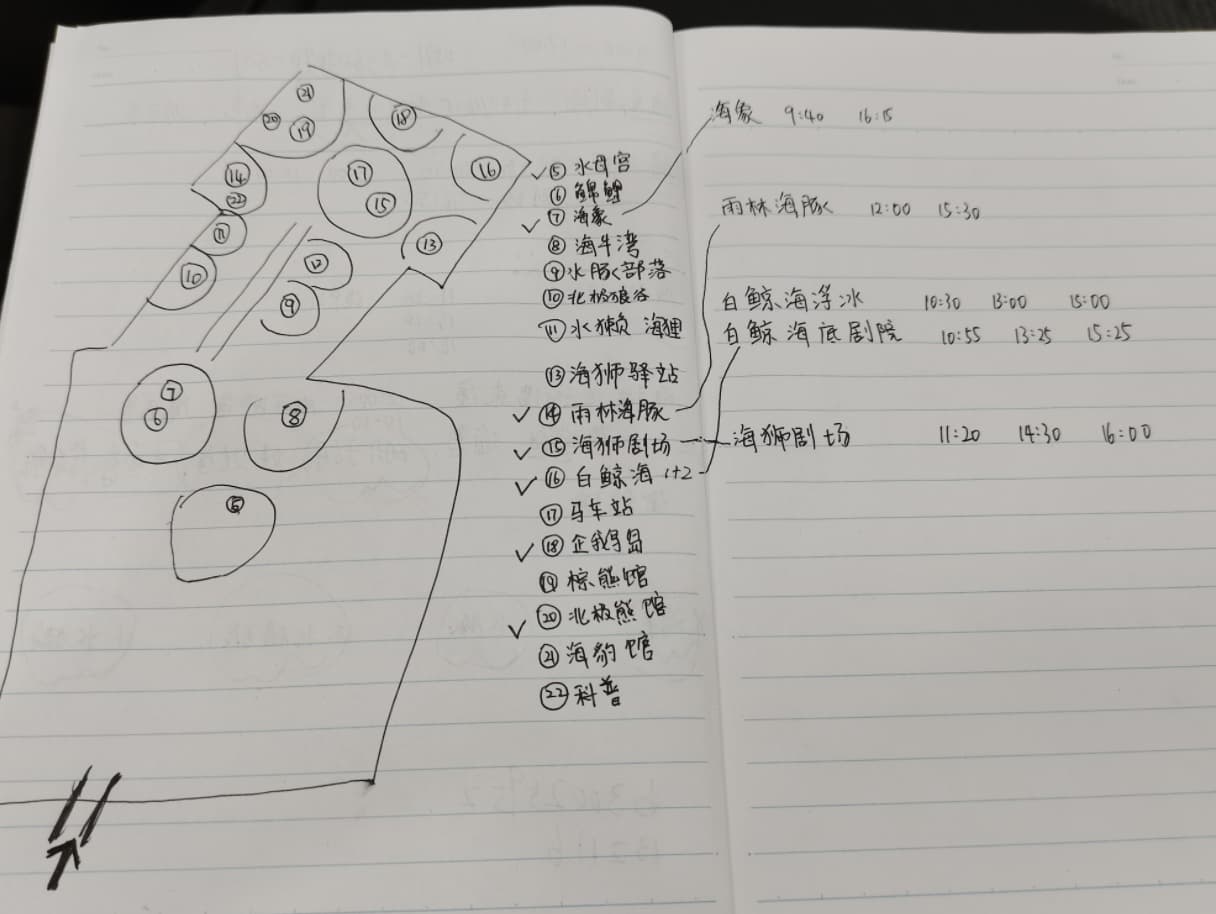 ㉑
⑳
⑲
⑱
⑭
㉒
⑰
⑮
⑯
⑪
⑬
⑩
⑫
⑨
⑦
⑥
⑧
⑤
⑤ 水母宫
⑥ 锦鲤
⑦ 海象
⑧ 海牛湾
⑨ 水豚部落
⑩ 北极狼谷
⑪ 水獭 海狸
⑬ 海狮驿站
⑭ 雨林海豚
⑮ 海狮剧场
⑯ 白鲸海 1+2
⑰ 马车站
⑱ 企鹅岛
⑲ 棕熊馆
⑳ 北极熊馆
㉑ 海豹馆
㉒ 科普
海象 9:40 16:15
雨林海豚 12:00 15:30
白鲸海浮冰 10:30 13:00 15:00
白鲸海底剧院 10:55 13:25 15:25
海狮剧场 11:20 14:30 16:00